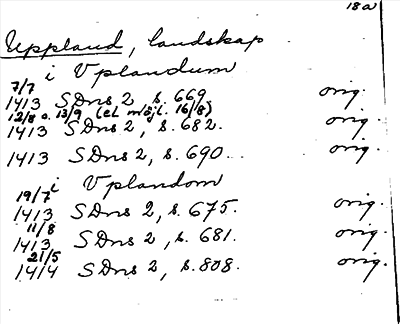 18a
Uppland, landskap
i Vplandum
7/7
1413 SDns 2, s. 669 orig.
12/8 o. 13/9 (el. möjl. 16/8)
1413 SDns 2, s. 682. orig.
1413 SDns 2, s. 690.. orig.
i Vplandom
19/7
1413 SDns 2, s. 675. orig.
11/8
1413 SDns 2, s. 681. orig.
21/5
1414 SDns 2, s. 808. orig.